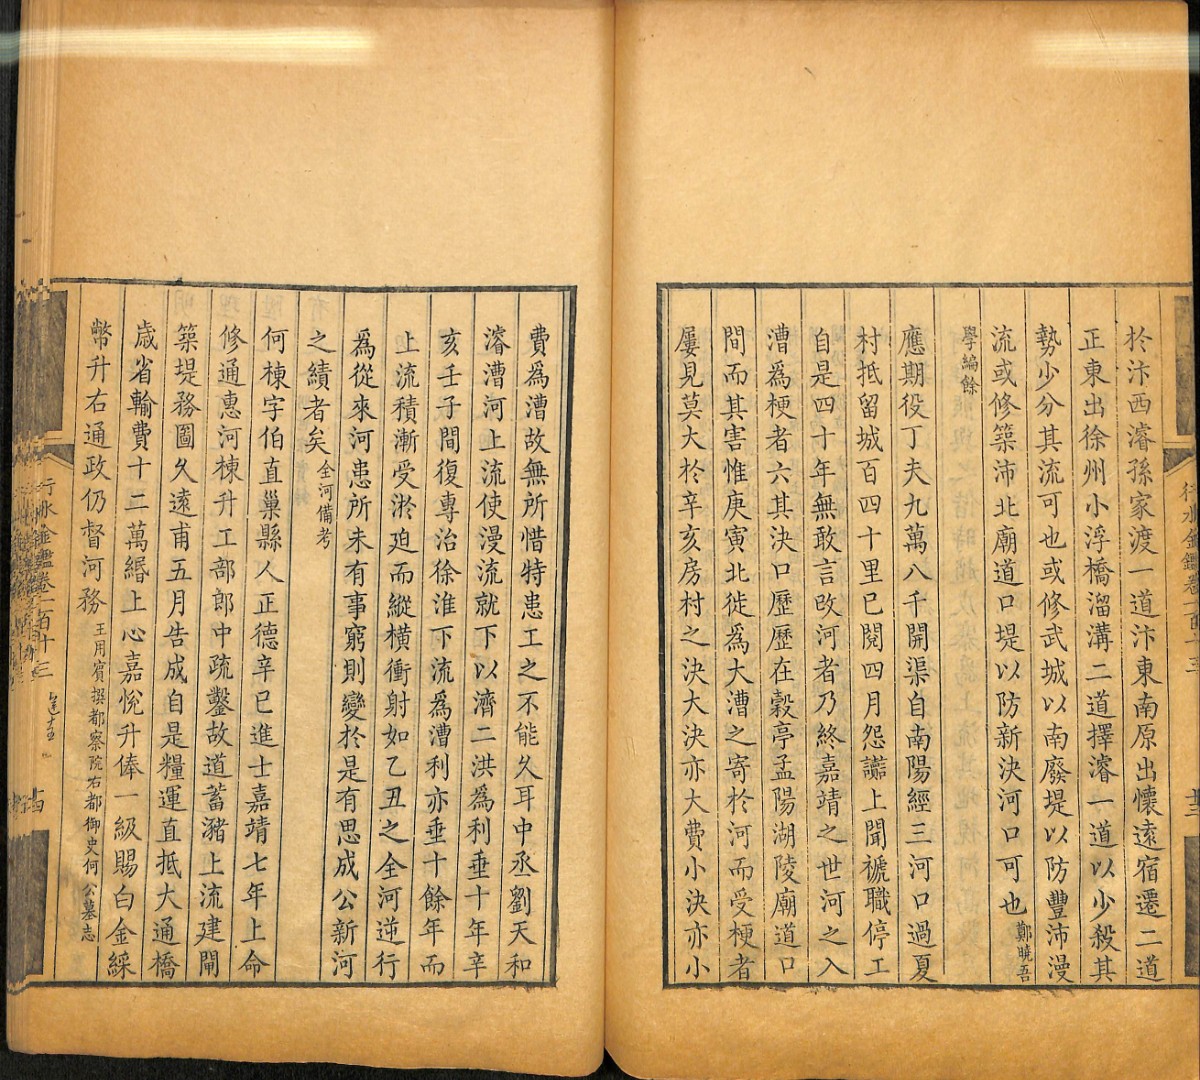 於汴西濬孫家渡一道汴東南原出懷遠宿遷二道
正東出徐州小浮橋溜溝二道擇濬一道以少殺其
勢少分其流可也或修武城以南廢堤以防豐沛漫
流或修築沛北廟道口堤以防新決河口可也鄭曉吾
學編餘
應期役丁夫九萬八千開渠自南陽經三河口過夏
村抵留城百四十里已閱四月怨讟上聞褫職停工
自是四十年無敢言改河者乃終嘉靖之世河之入
漕為梗者六其決口歷歷在穀亭孟陽湖陵廟道口
間而其害惟庚寅北徙為大漕之寄於河而受梗者
屢見莫大於辛亥房村之決大決亦大費小決亦小
費為漕故無所惜特患工之不能久耳中丞劉天和
濬漕河上流使漫流就下以濟二洪為利垂十年辛
亥壬子間復專治徐淮下流為漕利亦垂十餘年而
上流積漸受淤迫而縱橫衝射如乙丑之全河逆行
為從來河患所未有事窮則變於是有思成公新河
之績者矣全河備考
何棟字伯直巢縣人正德辛巳進士嘉靖七年上命
修通惠河棟升工部郎中疏鑿故道蓄瀦上流建閘
築堤務圖久遠甫五月告成自是糧運直抵大通橋
歲省輸費十二萬緡上心嘉悅升俸一級賜白金綵
幣升右通政仍督河務王用賓撰都察院右都御史何公墓志
行水金鑑卷一百十三